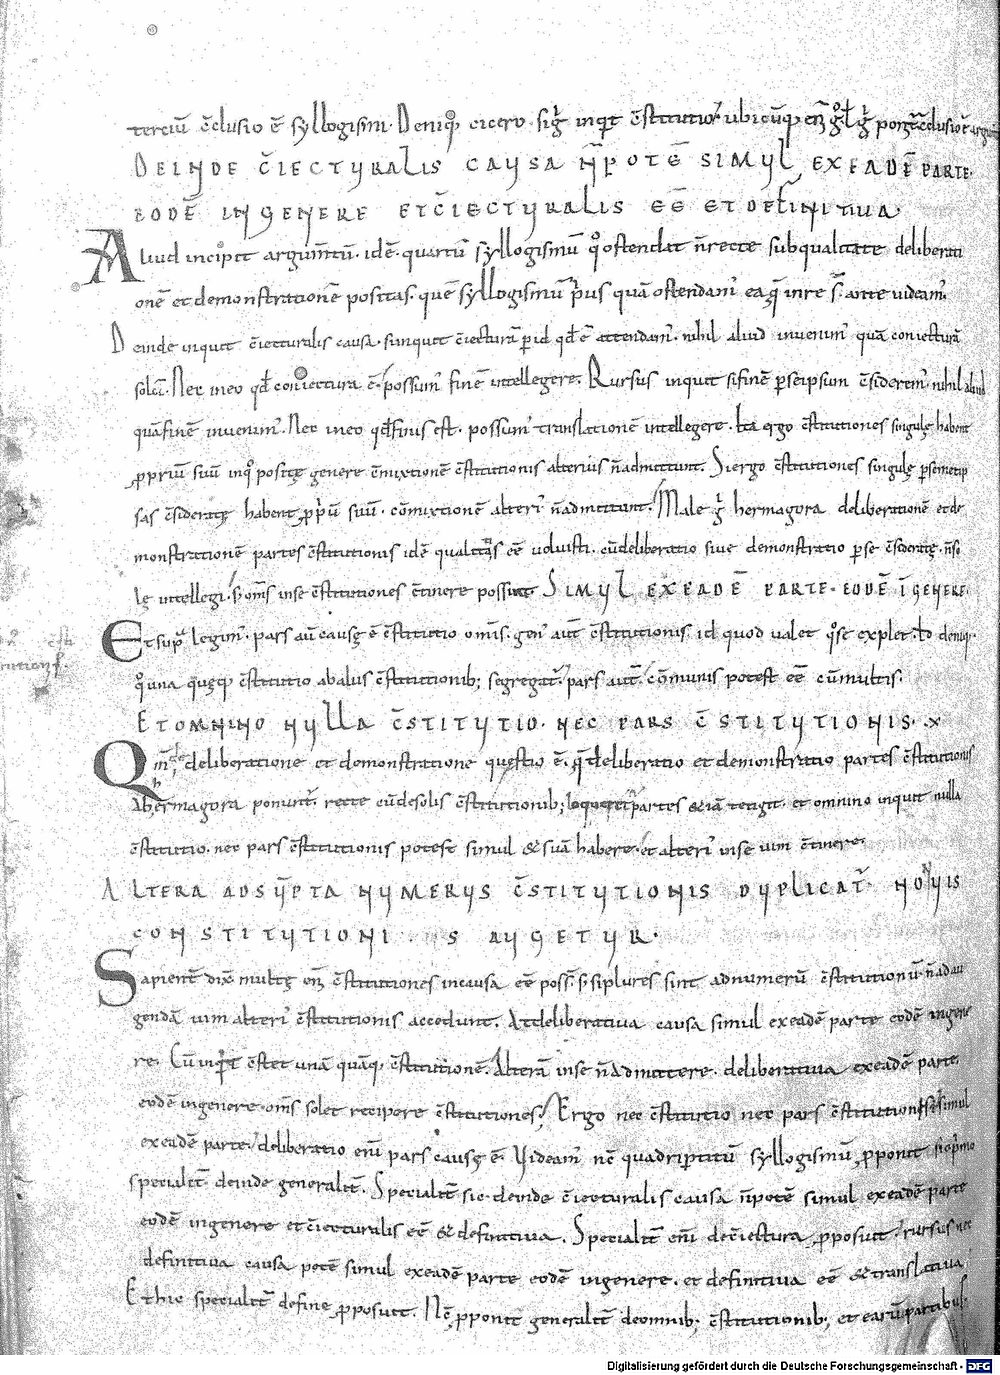 terciu᷈ c̄clusio ē syllogismi. Deniq; cicero. sigr̄ inquit c̄stitutio. ubicūq; eni᷈
DEINDE C̄IECTURALIS CAUSA N̄ POTĒ SIMUL EX EADĒ PARTE.
EODĒ IN GENERE ET C̄IECTURALIS EĒ ET DEFINITIUA.
Aliud incipit argum̄tū. idē. quartū syllogismū qo ostendat n̄ recte sub qualitate deliberati
onē et demonstrationē positas. quē syllogismū prius quā ostendam᾽ ea que in re s̄ ante videam᾽.
Deinde inquit c̄iecturalis causa. si inquit c̄iecturā p id qd ē attendam᾽. nihil aliud invenim᾽ quā coniecturā
solā. Nec in eo qd coniectura ē. possum᾽ finē intellegere. Rursus inquit si finē p se ipsum c̄siderem᾽. nihil aliud
quā finē invenim᾽. Nec in eo qd finis est. possum᾽ translationē intellegere. Ita ergo c̄stitutiones singulę habent
ppriū suū in quo positę genere c̄muxtionē c̄stitutionis alterius n̄ admittunt. Si ergo c̄stitutiones singulę p semetip
sas c̄sideratę habent ppriū suū. cōmuxtionē alteri᾽ n̄ admittunt. Male gr̄ hermagora deliberationē et de
monstrationē partes c̄stitutionis idē qualitatis eē voluisti. cū deliberatio sive demonstratio p se c̄siderate. n̄ so
lę intellegi. s; om̄s in se c̄stitutiones c̄tinere possint. SIMUL EX EADĒ PARTE. EODĒ Ī GENERE.
Et sup᾽ legim᾽. pars aū causę ē c̄stitutio omnis. gen᾽ aut̄ c̄stitutionis. id quod valet
qo una quęq; c̄stitutio ab aliis c̄stitutionib; segregat᾽. pars aut̄ cōmunis potest eē cū multis.
ET OMNINO NULLA C̄STITUTIO. NEC PARS C̄STITUTIONIS.
Qm̄ de deliberatione et demonstratione questio ē. qd deliberatio et demonstratio partes c̄stitutionis
ab hermagora ponunt᾽. recte cū de solis c̄stitutionib; loqueret᾽ partes etiā tetigit. et omnino inquit nulla
c̄stitutio. nec pars c̄stitutionis potest simul & suā habere. et alteri᾽ in se vim c̄tinere.
ALTERA ADSŪPTA NUMERUS C̄STITUTIONIS DUPLICAT᾽ NON UIS
CONSTITUTIONIS AUGETUR.
Sapient̄ dix̄ multę eni᷈ c̄stitutiones in causa eē poss̄. s; si plures sint ad numerū c̄stitutionū. n̄ ad au
gendā vim alteri᾽ c̄stitutionis accedunt. At deliberativa causa simul ex eadē parte eodē in gene
re. Cū inquit c̄stet unā quāq; c̄stitutionē. Alterā in se n̄ admittere. deliberativa ex eadē parte.
eodē in genere. om̄s solet recipere c̄stitutiones. Ergo nec c̄stitutio nec pars c̄stitutionis ē simul
ex eadē parte. deliberatio enī pars causę ē. Videam᾽ nē quadripertitū syllogismū pponit sic primo
specialit̄ deinde generalit̄. Specialit̄ sic. deinde c̄iecturalis causa n̄ potē simul ex eadē parte
eodē in genere et c̄iecturalis eē & definitiva. Specialit̄ enī de c̄iectura pposuit. rursus nec
definitiva causa potē simul ex eadē parte eodē in genere. et definitiva eē & translativa.
Et hic specialit̄ de fine pposuit. Nē pponit generalit̄ de omnib; c̄stitutionib; et earū partibus.
Digitalisierung gefördert durch die Deutsche Forschungsgemeinschaft - DFG